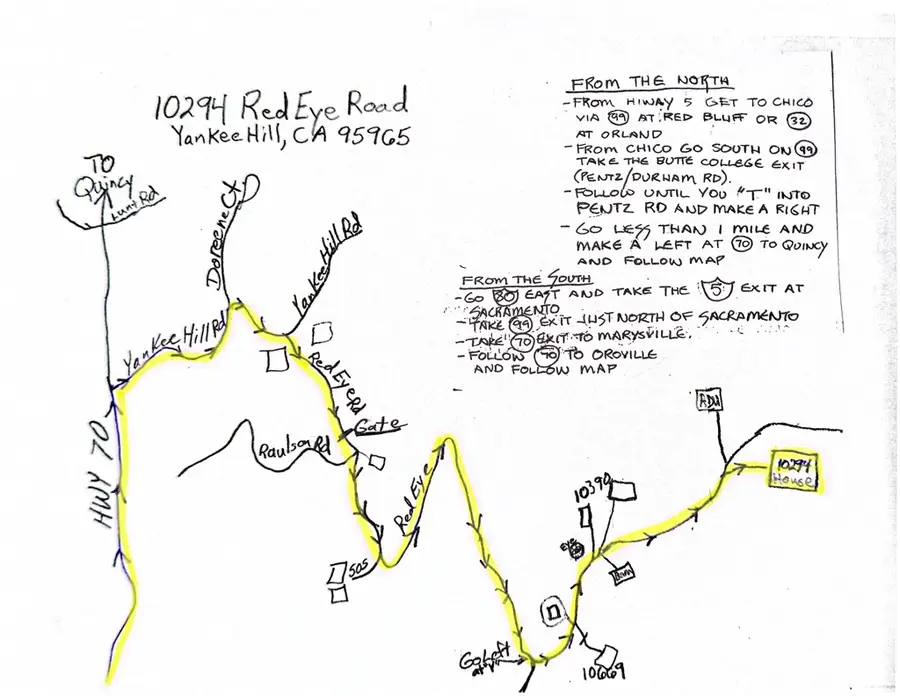 10294 Red Eye Road
Yankee Hill, CA 95965
FROM THE NORTH
- FROM HIWAY 5 GET TO CHICO
VIA 99 AT RED BLUFF OR 32
AT ORLAND
- FROM CHICO GO SOUTH ON 99
TAKE THE BUTTE COLLEGE EXIT
(PENTZ/DURHAM RD).
- FOLLOW UNTIL YOU "T" INTO
PENTZ RD AND MAKE A RIGHT
- GO LESS THAN 1 MILE AND
MAKE A LEFT AT 70 TO QUINCY
AND FOLLOW MAP
FROM THE SOUTH
- GO 80 EAST AND TAKE THE 5 EXIT AT
SACRAMENTO
- TAKE 99 EXIT JUST NORTH OF SACRAMENTO
- TAKE 70 EXIT TO MARYSVILLE.
- FOLLOW 70 TO OROVILLE
AND FOLLOW MAP
TO
Quincy
Lunt Rd
Doreene Ct
Yankee Hill Rd
Yankee Hill Rd
Red Eye Rd
Gate
HWY 70
Raulson Rd
Red Eye
ADU
10294
House
10390
Eye
Barn
505
Go Left
at Y
10669